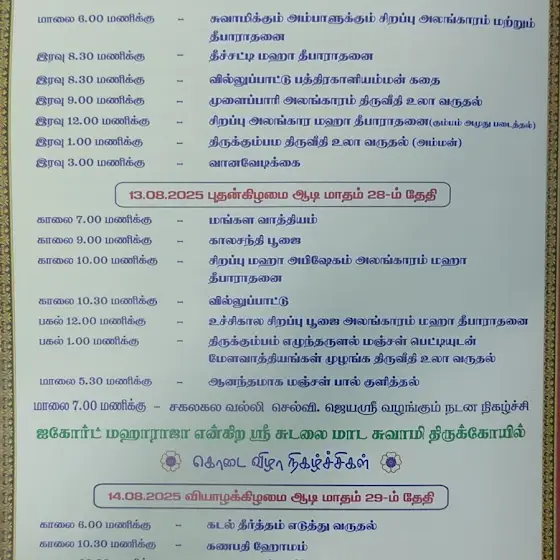 மாலை 6.00 மணிக்கு – சுவாமிக்கும் அம்பாளுக்கும் சிறப்பு அலங்காரம் மற்றும்
தீபாராதனை
இரவு 8.30 மணிக்கு – தீச்சட்டி மஹா தீபாராதனை
இரவு 8.30 மணிக்கு – வில்லுப்பாட்டு பத்திரகாளியம்மன் கதை
இரவு 9.00 மணிக்கு – முளைப்பாரி அலங்காரம் திருவீதி உலா வருதல்
இரவு 12.00 மணிக்கு – சிறப்பு அலங்கார மஹா தீபாராதனை(கும்பம் அமுது படைத்தல்)
இரவு 1.00 மணிக்கு – திருக்கும்பம திருவீதி உலா வருதல் (அம்மன்)
இரவு 3.00 மணிக்கு – வானவேடிக்கை
13.08.2025 புதன்கிழமை ஆடி மாதம் 28-ம் தேதி
காலை 7.00 மணிக்கு – மங்கள வாத்தியம்
காலை 9.00 மணிக்கு – காலசந்தி பூஜை
காலை 10.00 மணிக்கு – சிறப்பு மஹா அபிஷேகம் அலங்காரம் மஹா
தீபாராதனை
காலை 10.30 மணிக்கு – வில்லுப்பாட்டு
பகல் 12.00 மணிக்கு – உச்சிகால சிறப்பு பூஜை அலங்காரம் மஹா தீபாராதனை
பகல் 1.00 மணிக்கு – திருக்கும்பம் எழுந்தருளல் மஞ்சள் பெட்டியுடன்
மேளவாத்தியங்கள் முழங்க திருவீதி உலா வருதல்
மாலை 5.30 மணிக்கு – ஆனந்தமாக மஞ்சள் பால் குளித்தல்
மாலை 7.00 மணிக்கு – சகலகல வல்லி செல்வி. ஜெயஸ்ரீ வழங்கும் நடன நிகழ்ச்சி
ஐகோர்ட் மஹாராஜா என்கிற ஸ்ரீ சுடலை மாட சுவாமி திருக்கோயில்
கொடை விழா நிகழ்ச்சிகள்
14.08.2025 வியாழக்கிழமை ஆடி மாதம் 29-ம் தேதி
காலை 6.00 மணிக்கு – கடல் தீர்த்தம் எடுத்து வருதல்
காலை 10.30 மணிக்கு – கணபதி ஹோமம்